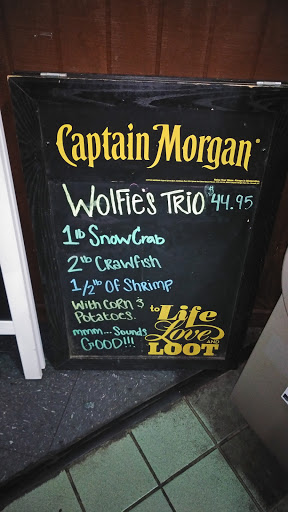 Captain Morgan
Wolfie's Trio $44.95
1lb SnowCrab
2lb Crawfish
1/2lb Of Shrimp
With Corn &
Potatoes.
mmm... Sounds
GOOD!!!
to Life
Love AND
LOOT